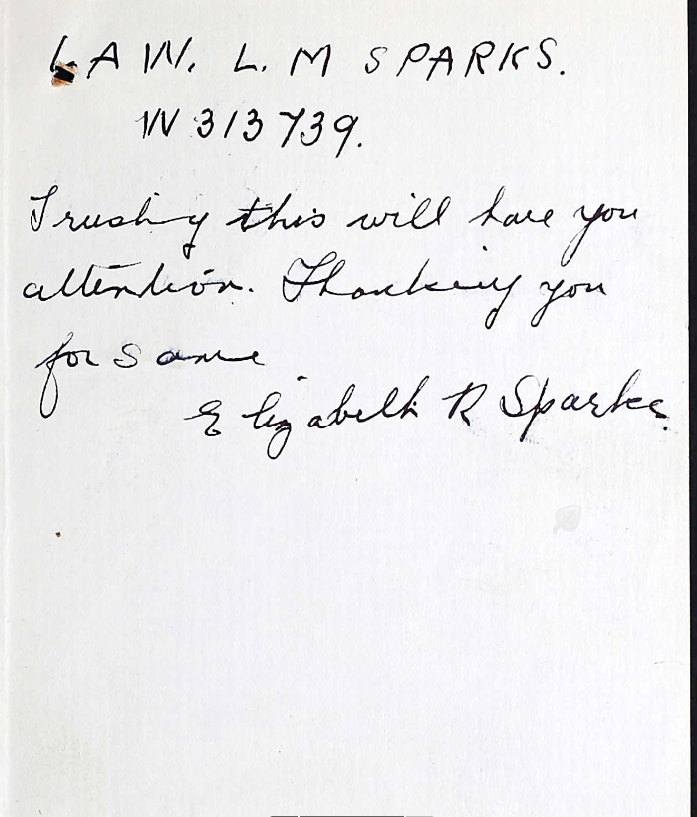 LAW. L. M SPARKS.
W313739.
Trusting this will have you
attention. Thanking you
for same.
Elizabeth R Sparks.